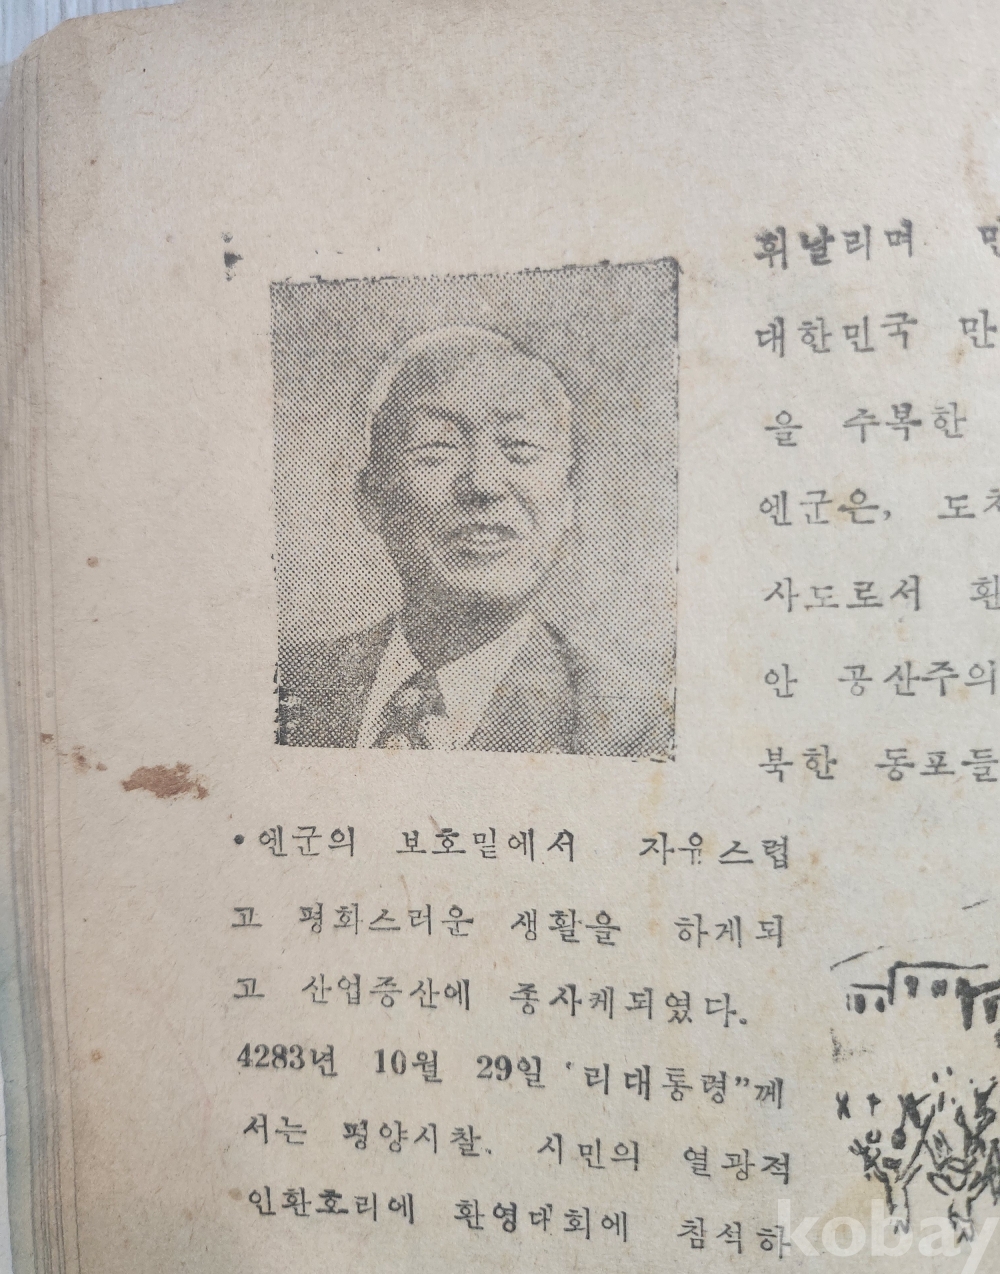 휘날리며
대한민국 만
을 수복한
엔군은, 도
사도로서 환
안 공산주의
북한 동포들
•엔군의 보호밑에서 자유스럽
고 평화스러운 생활을 하게되
고 산업증산에 종사케되였다.
4283년 10월 29일 ‘리대통령”께
서는 평양시찰. 시민의 열광적
인환호리에 환영대회에 참석하
kobay